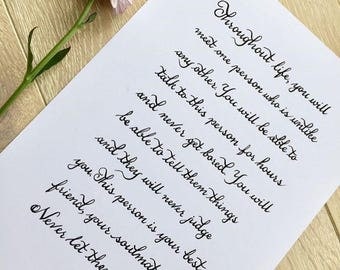 Throughout life, you will
meet one person who is unlike
any other. You will be able to
talk to this person for hours
and never get bored. You will
be able to tell them things
and they will never judge
you. This person is your best
friend, your soulmat
Never let the